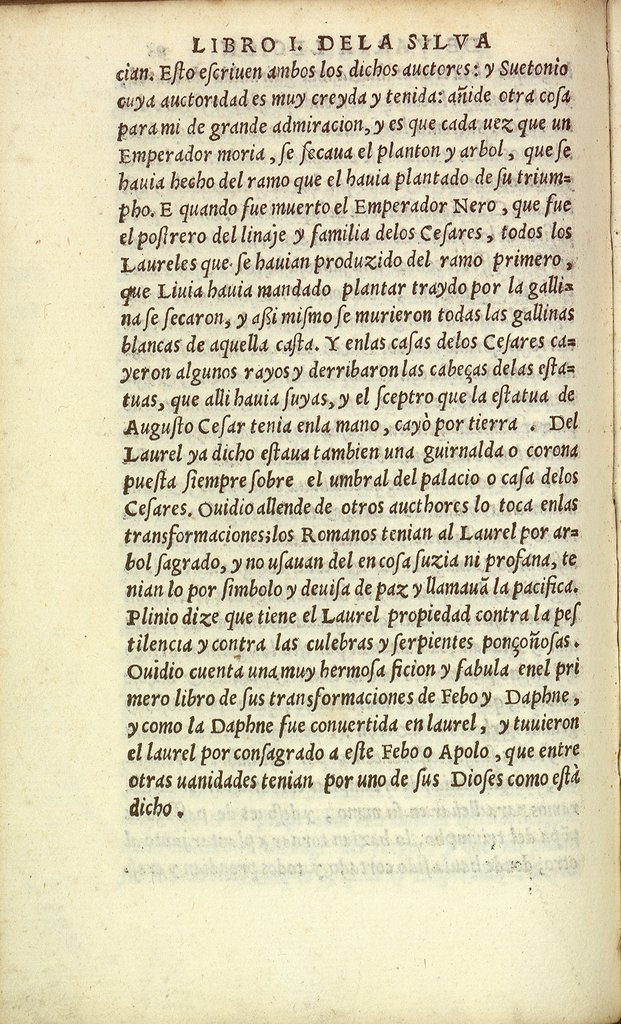 LIBRO I. DELA SILVA
cian. Eſto eſcriuen ambos los dichos auctores: y Suetonio
cuya auctoridad es muy creyda y tenida: añide otra coſa
para mi de grande admiracion, y es que cada uez que un
Emperador moria, ſe ſecaua el planton y arbol, que ſe
hauia hecho del ramo que el hauia plantado de ſu trium=
pho. E quando fue muerto el Emperador Nero, que fue
el poſtrero del linaje y familia delos Ceſares, todos los
Laureles que ſe hauian produzido del ramo primero,
que Liuia hauia mandado plantar traydo por la galli=
na ſe ſecaron, y aßi miſmo ſe murieron todas las gallinas
blancas de aquella caſta. Y enlas caſas delos Ceſares ca=
yeron algunos rayos y derribaron las cabeças delas eſta=
tuas, que alli hauia ſuyas, y el ſceptro que la eſtatua de
Auguſto Ceſar tenia enla mano, cayò por tierra . Del
Laurel ya dicho eſtaua tambien una guirnalda o corona
pueſta ſiempre ſobre el umbral del palacio o caſa delos
Ceſares. Ouidio allende de otros aucthores lo toca enlas
transformaciones; los Romanos tenian al Laurel por ar=
bol ſagrado, y no uſauan del en coſa ſuzia ni profana, te
nian lo por ſimbolo y deuiſa de paz y llamauã la pacifica.
Plinio dize que tiene el Laurel propiedad contra la peſ
tilencia y contra las culebras y ſerpientes ponçoñoſas.
Ouidio cuenta una muy hermoſa ficion y fabula enel pri
mero libro de ſus transformaciones de Febo y Daphne,
y como la Daphne fue conuertida en laurel, y tuuieron
el laurel por conſagrado a eſte Febo o Apolo, que entre
otras uanidades tenian por uno de ſus Dioſes como eſtà
dicho.